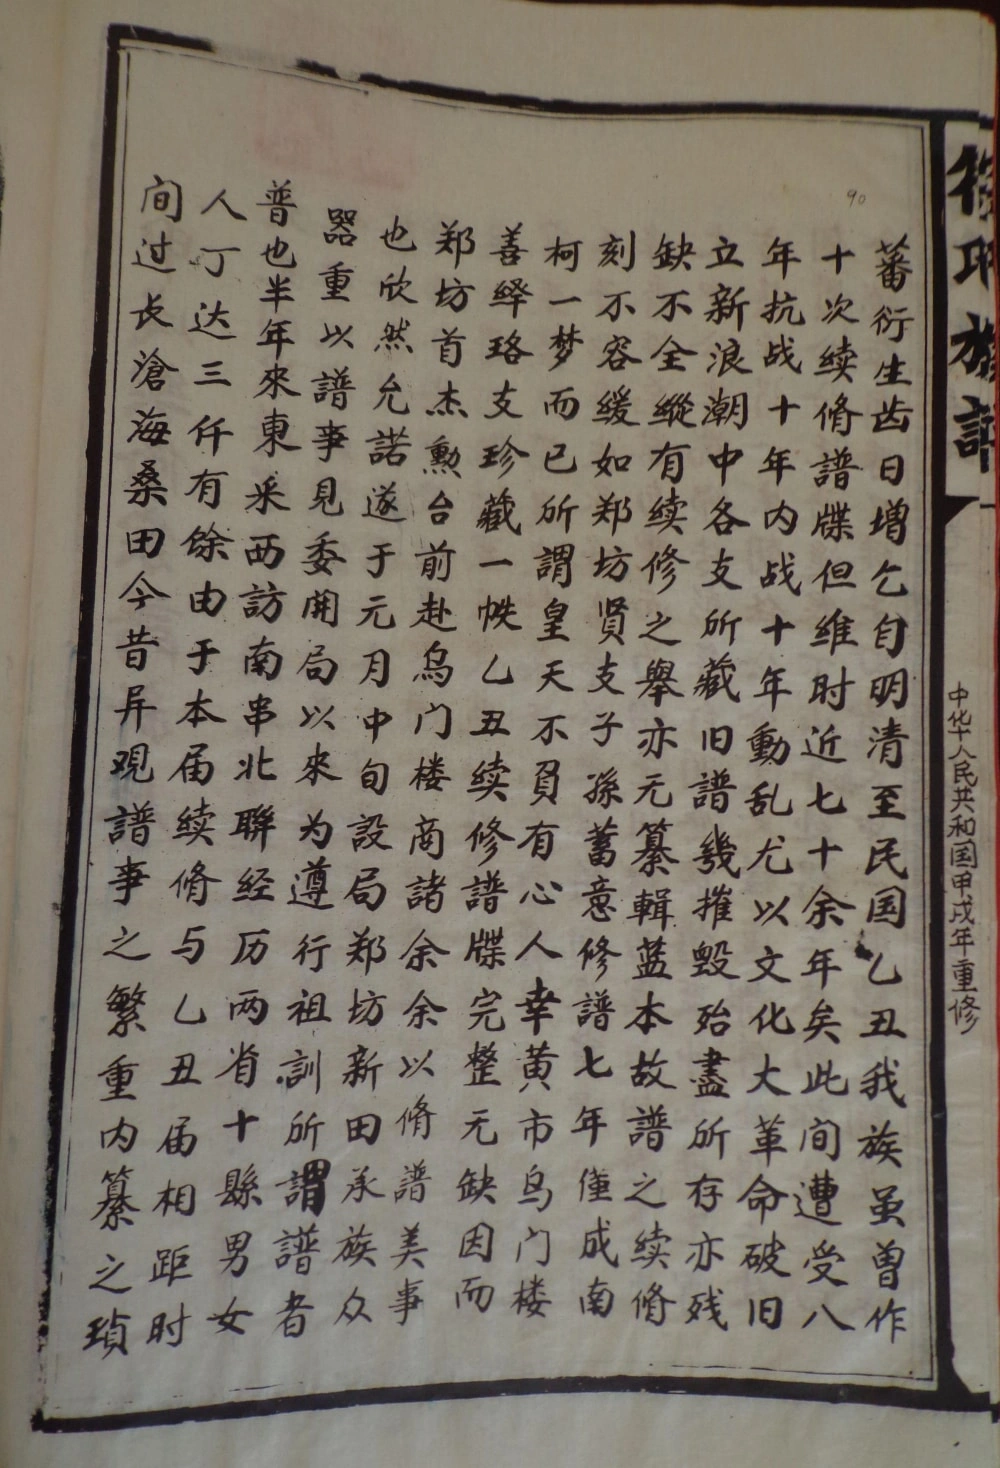 族譜
中华人民共和国甲戌年重修
90
蕃衍生齿日增乞自明清至民国乙丑我族虽曾作
十次续脩譜牒但维时近七十余年矣此间遭受八
年抗战十年内战十年動乱尤以文化大革命破旧
立新浪潮中各支所藏旧譜幾摧毁殆盡所存亦残
缺不全縱有续修之舉亦元纂輯蓝本故譜之续脩
刻不容缓如郑坊贤支子孫蓄意修譜七年僅成南
柯一梦而已所謂皇天不負有心人幸黄市鸟门楼
善绎珞支珍藏一帙乙丑续修譜牒完整无缺因而
郑坊首杰勲台前赴鸟门楼商諸余余以脩譜美事
也欣然允諾遂于元月中旬設局郑坊新田承族众
器重以譜事見委開局以來为遵行祖訓所謂譜者
普也半年來東采西訪南串北聨经历两省十縣男女
人丁达三仟有馀由于本届续脩与乙丑届相距时
间过长滄海桑田今昔异观譜事之繁重内纂之瑣